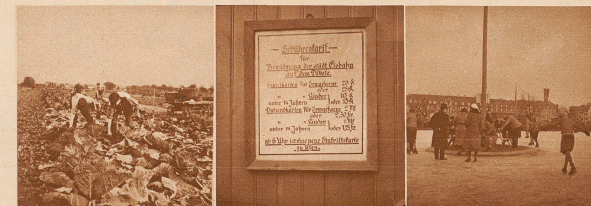 Gebührentarif
für
Benützung der städt. Eisbahn
auf dem
Einzelkarten für Erwachsene 20
oder
" " Kinder 10
unter 14 Jahren oder
Dutzendkarten für Erwachsene 2
oder 2.30 fr.
" " Kinder 1
unter 14 Jahren oder
ab 6 Uhr ist eine neue Eintrittskarte
zu lösen.